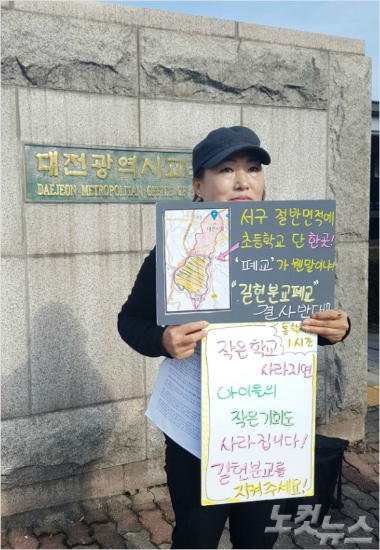 대전광역시교
DAEJEON METROPOLITAN OFFICE OF
서구 절반면적에
초등학교 단 한곳!
'폐교'가 웬말이냐!
"길헌분교폐교"
결사반대!!
통학
1시간
작은학교
사라지면
아이들의
작은기회도
사라집니다!
길헌분교를
지켜주세요!
노컷뉴스